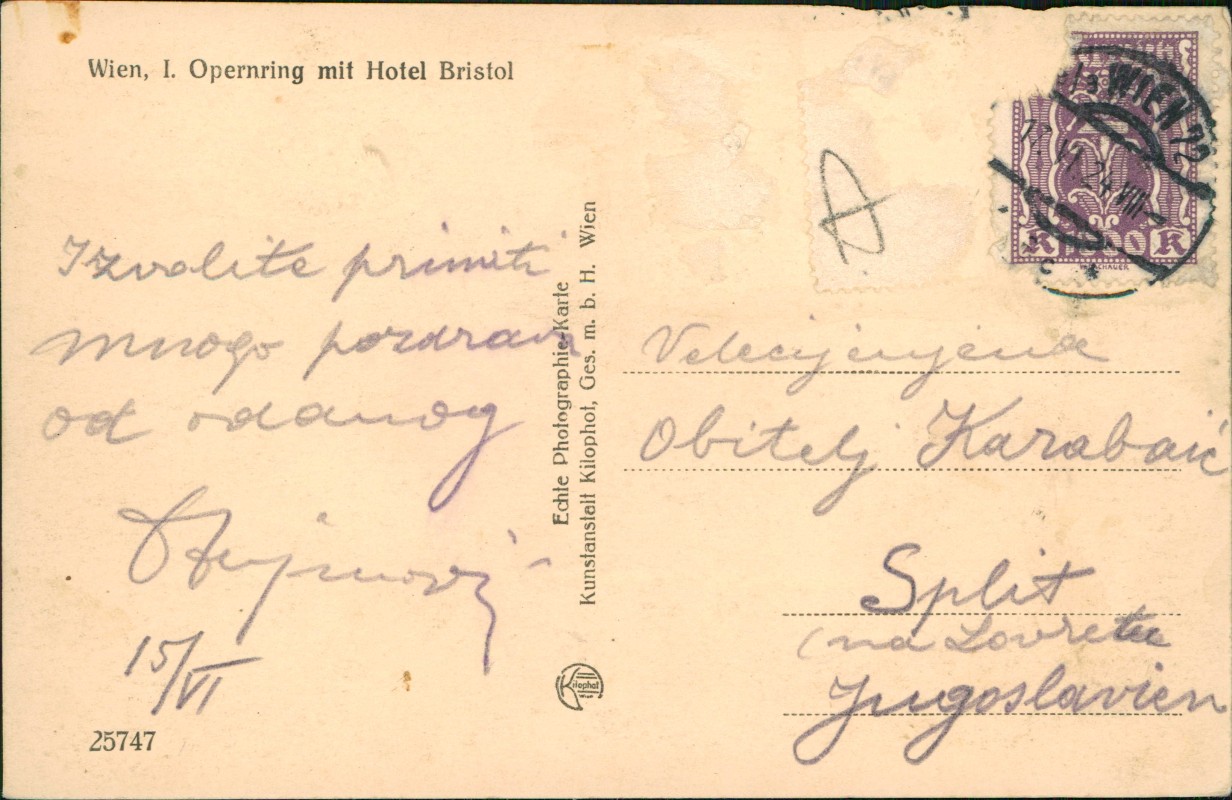 Wien, I. Opernring mit Hotel Bristol
Izvolite primiti
mnogo pozdrava
od odanog
15/VI
25747
Echte Photographie-Karte
Kunstanstalt Kilophot, Ges. m. b. H. Wien
Kilophot
WIEN
WIEN 72
24 VIII
K K
Velecijenjena
Obitelj Karabaić
Split
(na Lovretu
Jugoslavien